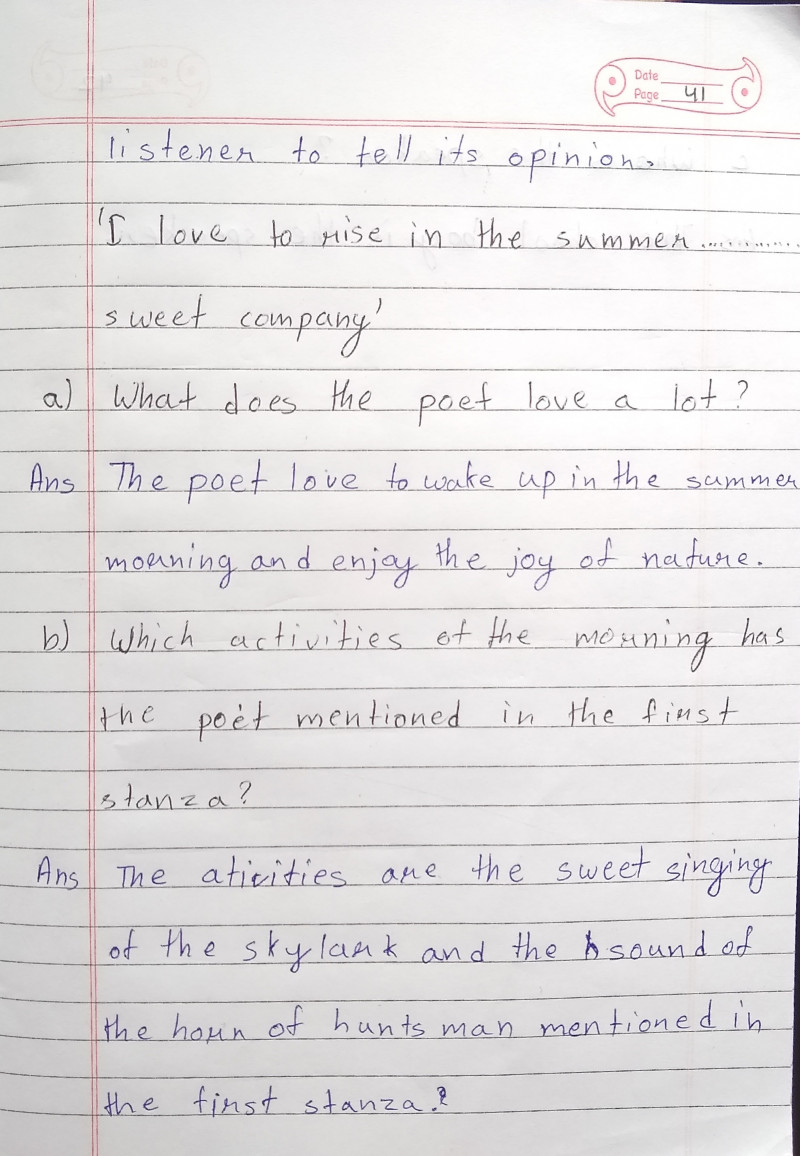 Date
Page 41
listener to tell its opinion.
'I love to rise in the summer.............
sweet company'
a) What does the poet love a lot?
Ans The poet love to wake up in the summer
morning and enjoy the joy of nature.
b) Which activities of the morning has
the poet mentioned in the first
stanza?
Ans The aticities are the sweet singing
of the skylark and the sound of
the horn of hunts man mentioned in
the first stanza.